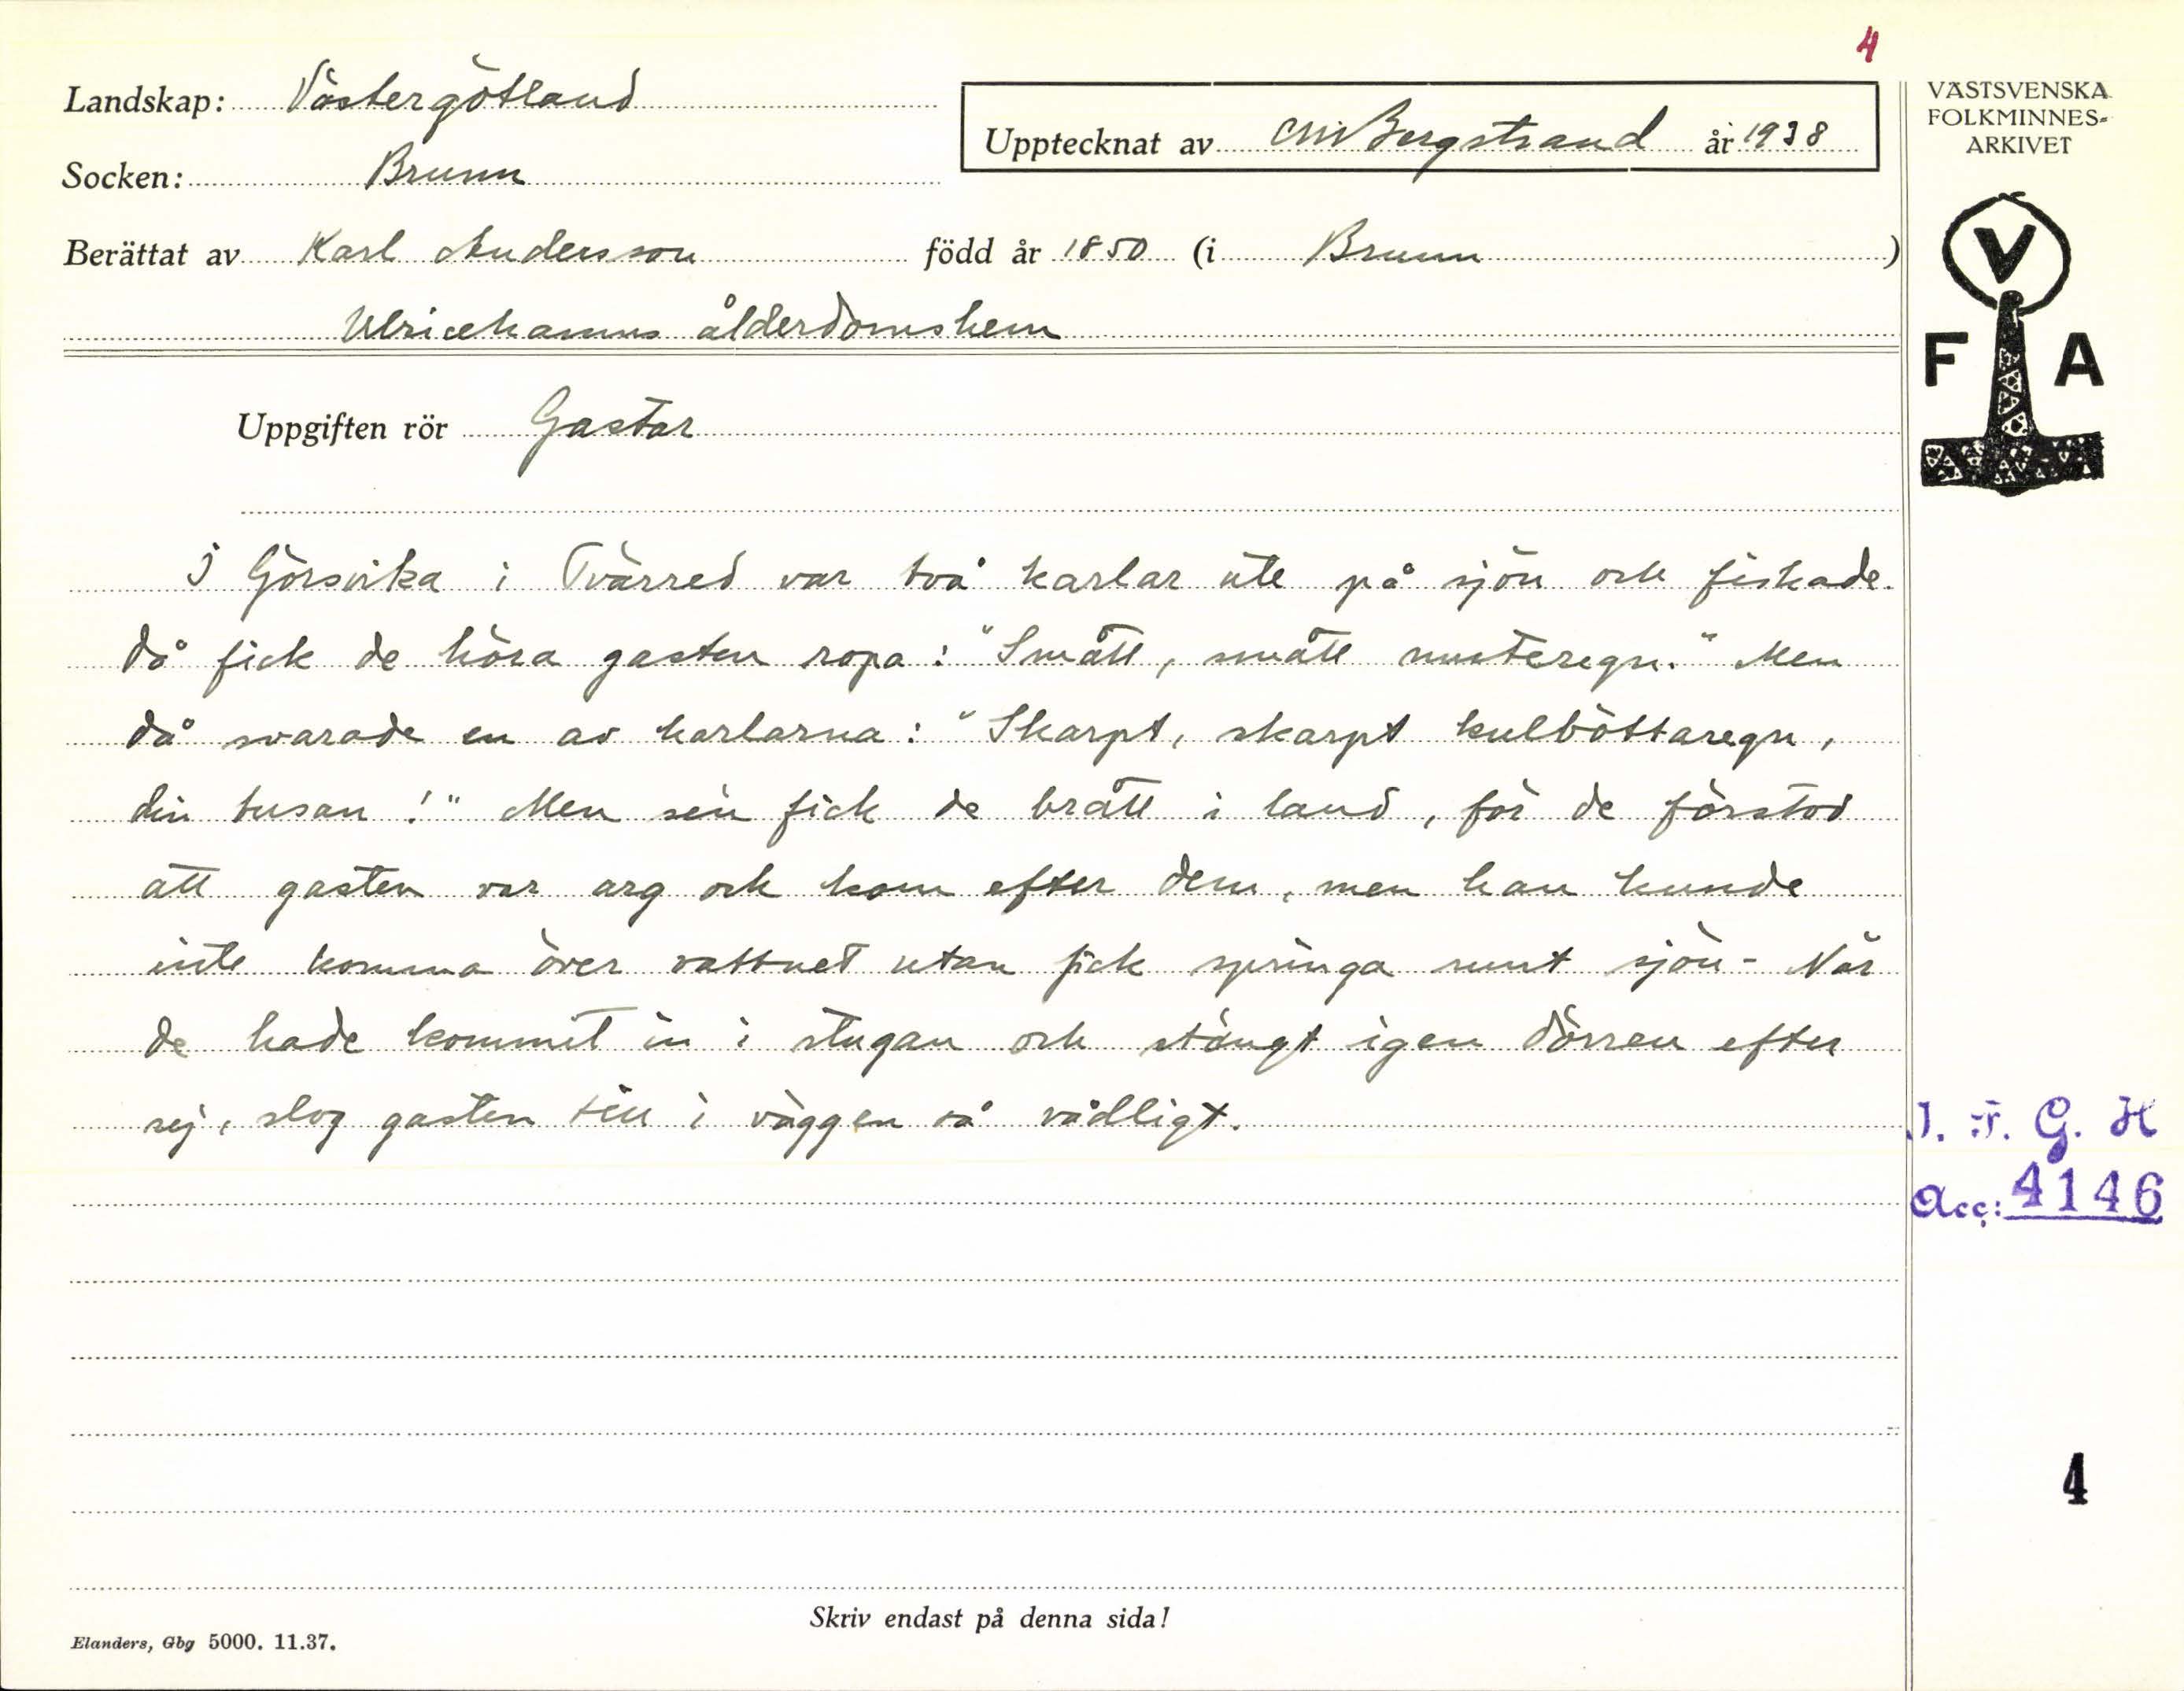 4
Landskap: Västergötland
Upptecknat av CM Bergstrand år 1938
Socken: Brunn
Berättat av Karl Andersson född år 1850 (i Brunn)
Ulricehamns ålderdomshem
Uppgiften rör Gastar
I Görsvika i Tvärred var två karlar ute på sjön och fiskade.
då fick de höra gasten ropa: "Smått, smått musteregn." Men
då svarade en av karlarna: "Skarpt, skarpt kulböttaregn,
din tusan!" Men sen fick de brått i land, för de förstod
att gasten var arg och kom efter dem, men han kunde
inte komma över vattnet utan fick springa runt sjön - När
de hade kommit in i stugan och stängt igen dörren efter
sej, slog gasten till i väggen så vådligt.
VÄSTSVENSKA
FOLKMINNES-
ARKIVET
V
F A
I. F. G. H
Acc: 4146
4
Skriv endast på denna sida!
Elanders, Gbg 5000. 11.37.